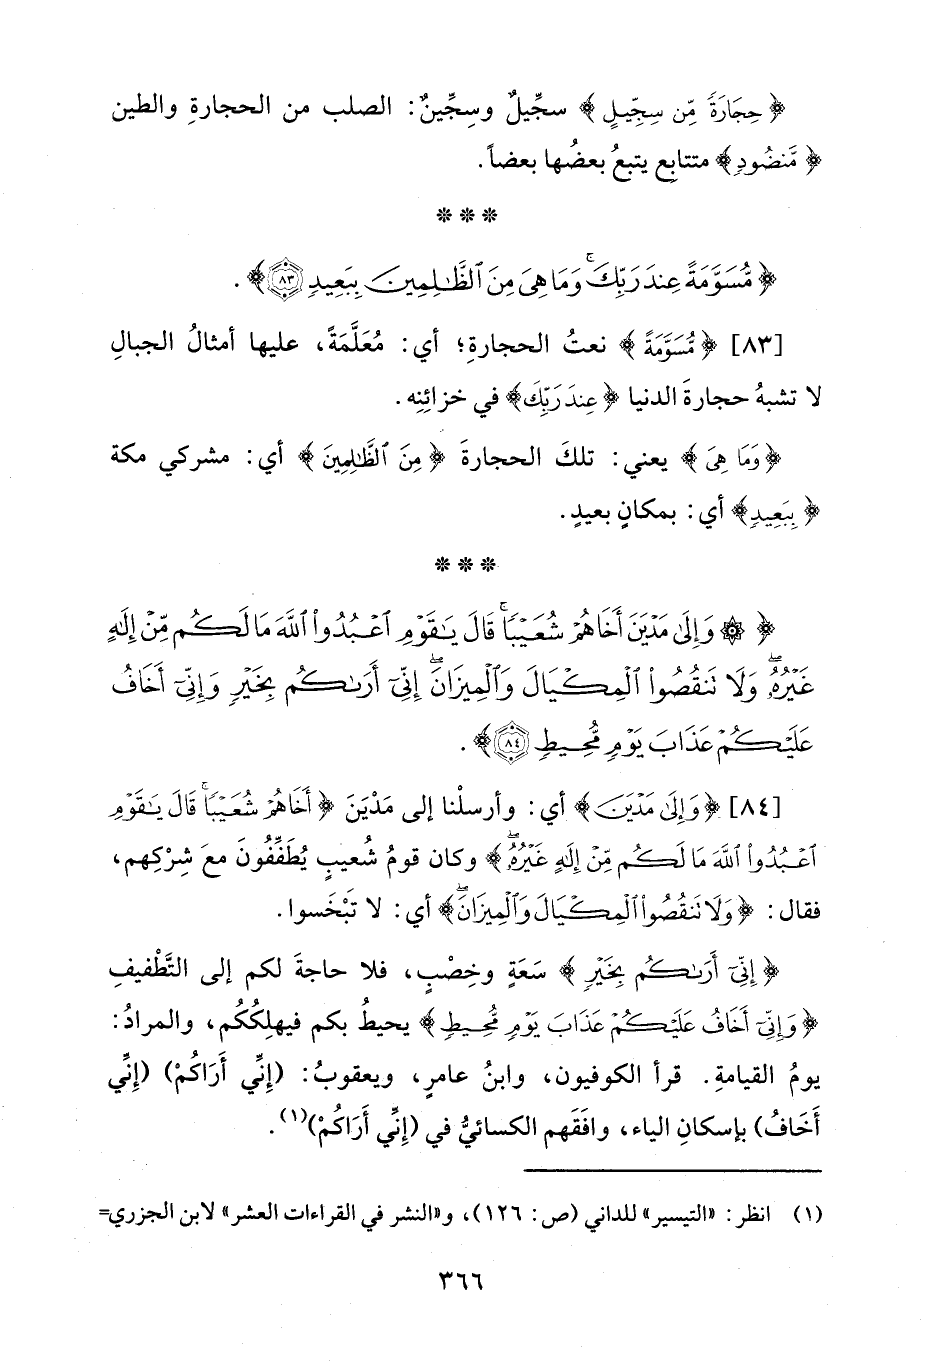 ﴿حِجَارَةً مِّن سِجِّيلٍ﴾ سجِّيلٌ وسِجِّينٌ: الصلب من الحجارةِ والطين
﴿مَّنضُودٍ﴾ متتابع يتبعُ بعضُها بعضاً.
* * *
﴿مُّسَوَّمَةً عِندَ رَبِّكَ ۖ وَمَا هِيَ مِنَ ٱلظَّٰلِمِينَ بِبَعِيدٍ ۝٨٣﴾.
[٨٣] ﴿مُّسَوَّمَةً﴾ نعتُ الحجارةِ؛ أي: مُعَلَّمَةً، عليها أمثالُ الجبالِ
لا تشبهُ حجارةَ الدنيا ﴿عِندَ رَبِّكَ﴾ في خزائِنِه.
﴿وَمَا هِيَ﴾ يعني: تلكَ الحجارةَ ﴿مِنَ ٱلظَّٰلِمِينَ﴾ أي: مشركي مكة
﴿بِبَعِيدٍ﴾ أي: بمكانٍ بعيدٍ.
* * *
﴿۞ وَإِلَىٰ مَدْيَنَ أَخَاهُمْ شُعَيْبًا ۚ قَالَ يَٰقَوْمِ ٱعْبُدُوا۟ ٱللَّهَ مَا لَكُم مِّنْ إِلَٰهٍ
غَيْرُهُۥ ۖ وَلَا تَنقُصُوا۟ ٱلْمِكْيَالَ وَٱلْمِيزَانَ ۖ إِنِّىٓ أَرَىٰكُم بِخَيْرٍ وَإِنِّىٓ أَخَافُ
عَلَيْكُمْ عَذَابَ يَوْمٍ مُّحِيطٍ ۝٨٤﴾.
[٨٤] ﴿وَإِلَىٰ مَدْيَنَ﴾ أي: وأرسلْنا إلى مَدْيَنَ ﴿أَخَاهُمْ شُعَيْبًا ۚ قَالَ يَٰقَوْمِ
ٱعْبُدُوا۟ ٱللَّهَ مَا لَكُم مِّنْ إِلَٰهٍ غَيْرُهُۥ ۖ﴾ وكان قومُ شُعيبٍ يُطَفِّفُونَ معَ شِرْكِهم،
فقال: ﴿وَلَا تَنقُصُوا۟ ٱلْمِكْيَالَ وَٱلْمِيزَانَ ۖ﴾ أي: لا تَبْخَسوا.
﴿إِنِّىٓ أَرَىٰكُم بِخَيْرٍ﴾ سَعَةٍ وخِصْبٍ، فلا حاجةَ لكم إلى التَّطْفيفِ
﴿وَإِنِّىٓ أَخَافُ عَلَيْكُمْ عَذَابَ يَوْمٍ مُّحِيطٍ﴾ يحيطُ بكم فيهلِكُكُم، والمرادُ:
يومُ القيامةِ. قرأ الكوفيون، وابنُ عامرٍ، ويعقوبُ: (إِنِّي أَرَاكُمْ) (إِنِّي
أَخَافُ) بإسكانِ الياء، وافَقَهم الكسائيُّ في (إِنِّي أَرَاكُمْ)(١).
(١) انظر: «التيسير» للداني (ص: ١٢٦)، و«النشر في القراءات العشر» لابن الجزري=
٣٦٦